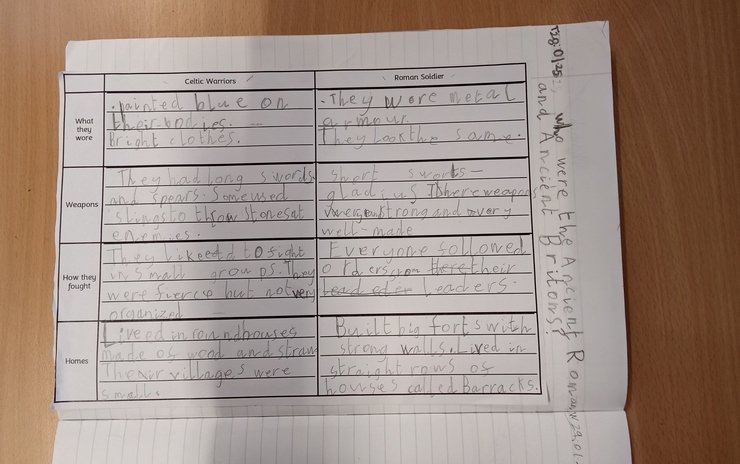 Celtic Warriors
Roman Soldier
What they wore
.painted blue on
their bodies.
Bright clothes.
. They wore metal
armour.
They look the same.
Weapons
They had long swords
and spears. Some used
slings to throw stones at
enemies.
short sworts-
gladius There weapons
strong and very
well-made
How they fought
They likeed to fight
in small groups. They
were fierce but not very
organized
Everyone followed
orders from their
Leaders.
Homes
Lived in roundhouses
made of wood and straw
Their villages were
small.
Built big forts with
strong walls. Lived in
straight rows of
houses called Barracks.
who were the Ancient Roman
and Ancient Britons?